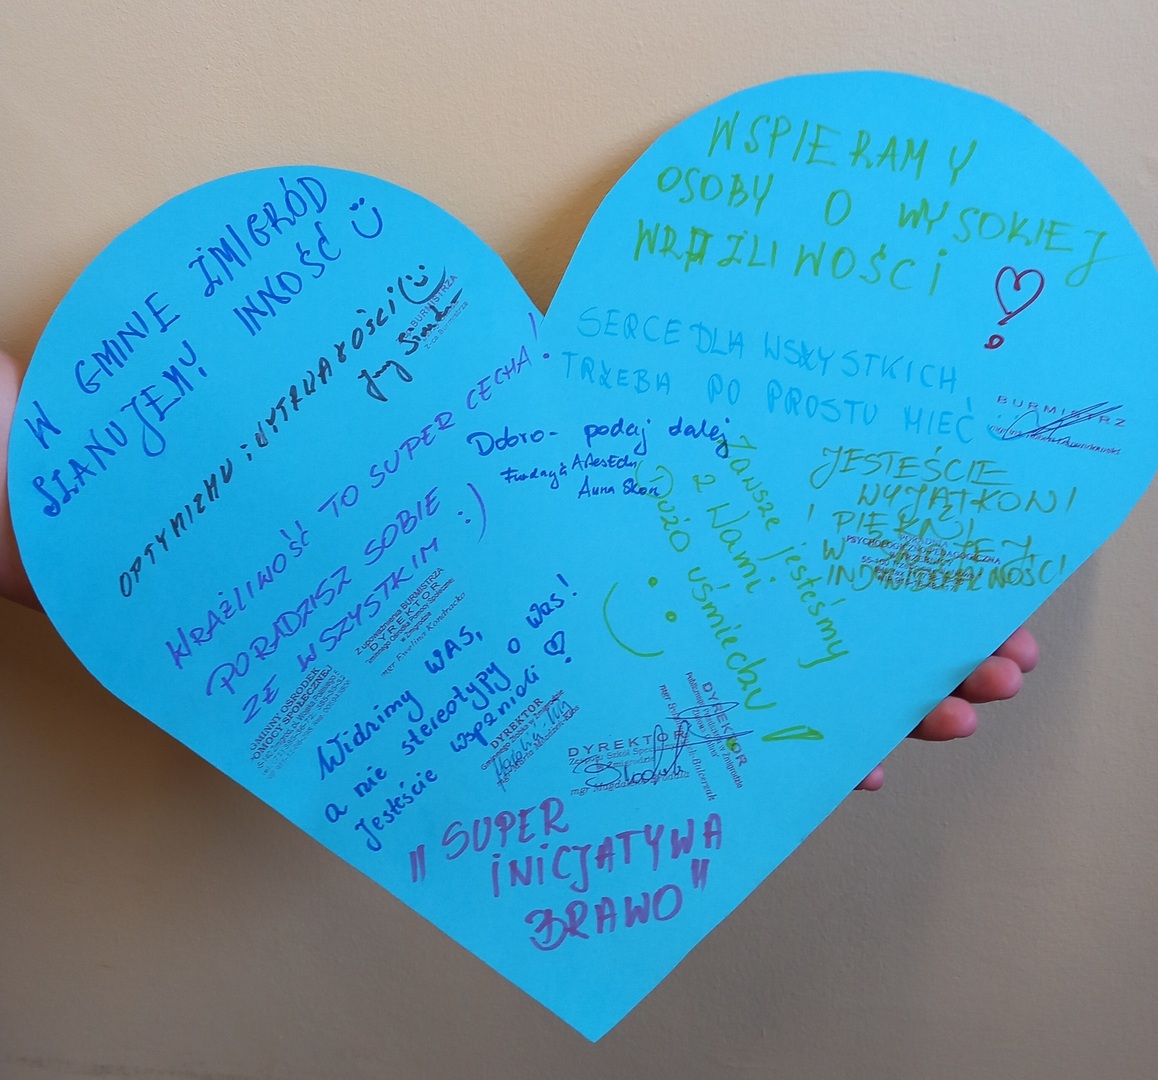 W GMINIE ŻMIGRÓD
SZANUJEMY INNOŚĆ
OPTYMIZMU i WYTRWAŁOŚCI
WRAŻLIWOŚĆ TO SUPER CECHA!
PORADZISZ SOBIE
ZE WSZYSTKIM :)
Z upoważnienia BURMISTRZA
DYREKTOR
Gminnego Ośrodka Pomocy Społecznej
w Żmigrodzie
mgr Ewelina Kondracka
GMINNY OŚRODEK
POMOCY SPOŁECZNEJ
Widzimy WAS,
a nie stereotypy o Was!
Jesteście wspaniali
DYREKTOR
"SUPER
INICJATYWA
BRAWO"
WSPIERAMY
OSOBY O WYSOKIEJ
WRAŻLIWOŚCI
SERCE DLA WSZYSTKICH
TRZEBA PO PROSTU MIEĆ
BURMISTRZ
Dobro - podaj dalej
Anna Skon
Zawsze jesteśmy
z Wami
Dużo uśmiechu
JESTEŚCIE
WYJĄTKOWI
I PIĘKNI
W SWOJEJ
INDYWIDUALNOŚCI
PORADNIA
PSYCHOLOGICZNO-PEDAGOGICZNA
DYREKTOR
DYREKTOR